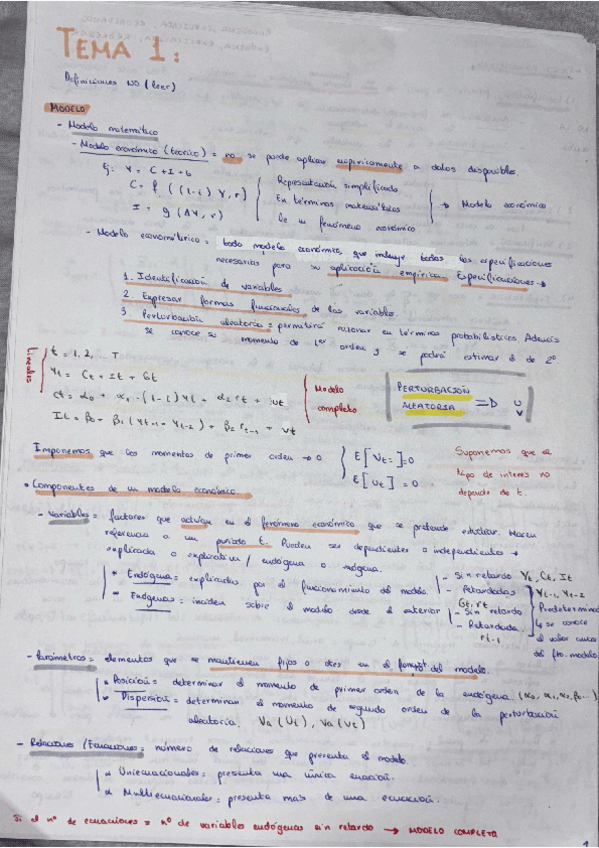 TEMA 1:
Definiciones NO (leer)
MODELO
- Modelo matemático
- Modelo económico (teórico) = no se puede aplicar empíricamente a datos disponibles.
Ej: Y = C + I + G
C = f ((1-t) Y, r)
I = g (ΔY, r)
Representación simplificada
En términos matemáticos
De un fenómeno económico
→ Modelo económico
- Modelo econométrico = todo modelo económico, que incluye todas las especificaciones
necesarias para su aplicación empírica. Especificaciones →
1. Identificación de variables
2. Expresar formas funcionales de las variables.
3. Perturbación aleatoria = permitirá razonar en términos probabilísticos. Además
se conoce su momento de 1er orden y se podrá estimar el de 2º.
Lineales
t = 1, 2, T
Yt = Ct + It + Gt
Ct = α0 + α1 (1-t) Yt - α2 rt + ut
It = β0 - β1 (Yt-1 - Yt-2) + β2 rt-1 + vt
Modelo
completo
PERTURBACIÓN
ALEATORIA ⇒ U
V
Imponemos que los momentos de primer orden → 0
E[Vt=]=0
E[Ut] = 0
Suponemos que el
tipo de interes no
depende de t.
• Componentes de un modelo económico.
- Variables = factores que actúan en el fenómeno económico que se pretende estudiar. Hacen
referencia a un período t. Pueden ser dependientes o independientes →
explicada o explicativa / endógena o exógena.
* Endógena = explicadas por el funcionamiento del modelo.
- Sin retardo Yt, Ct, It
- Retardadas Yt-1, Yt-2
* Exógenas = inciden sobre el modelo desde el exterior
Gt, rt
- Sin retardo
- Retardada
rt-1
Predeterminada
↳ se conoce
el valor antes
del fto. modelo
- Parámetros = elementos que se mantienen fijos o ctes en el fompt. del modelo.
* Posición = determinar el momento de primer orden de la endógena. (α0, α1, α2, β...)
* Dispersión = determinan el momento de segundo orden de la perturbación
aleatoria. Va(Ut), Va(Vt)
- Relaciones / Ecuaciones = número de relaciones que presenta el modelo.
* Uniecuacionales = presenta una única ecuación.
* Multiecuacionales = presenta más de una ecuación.
Si el nº de ecuaciones = nº de variables endógenas sin retardo → MODELO COMPLETO
1